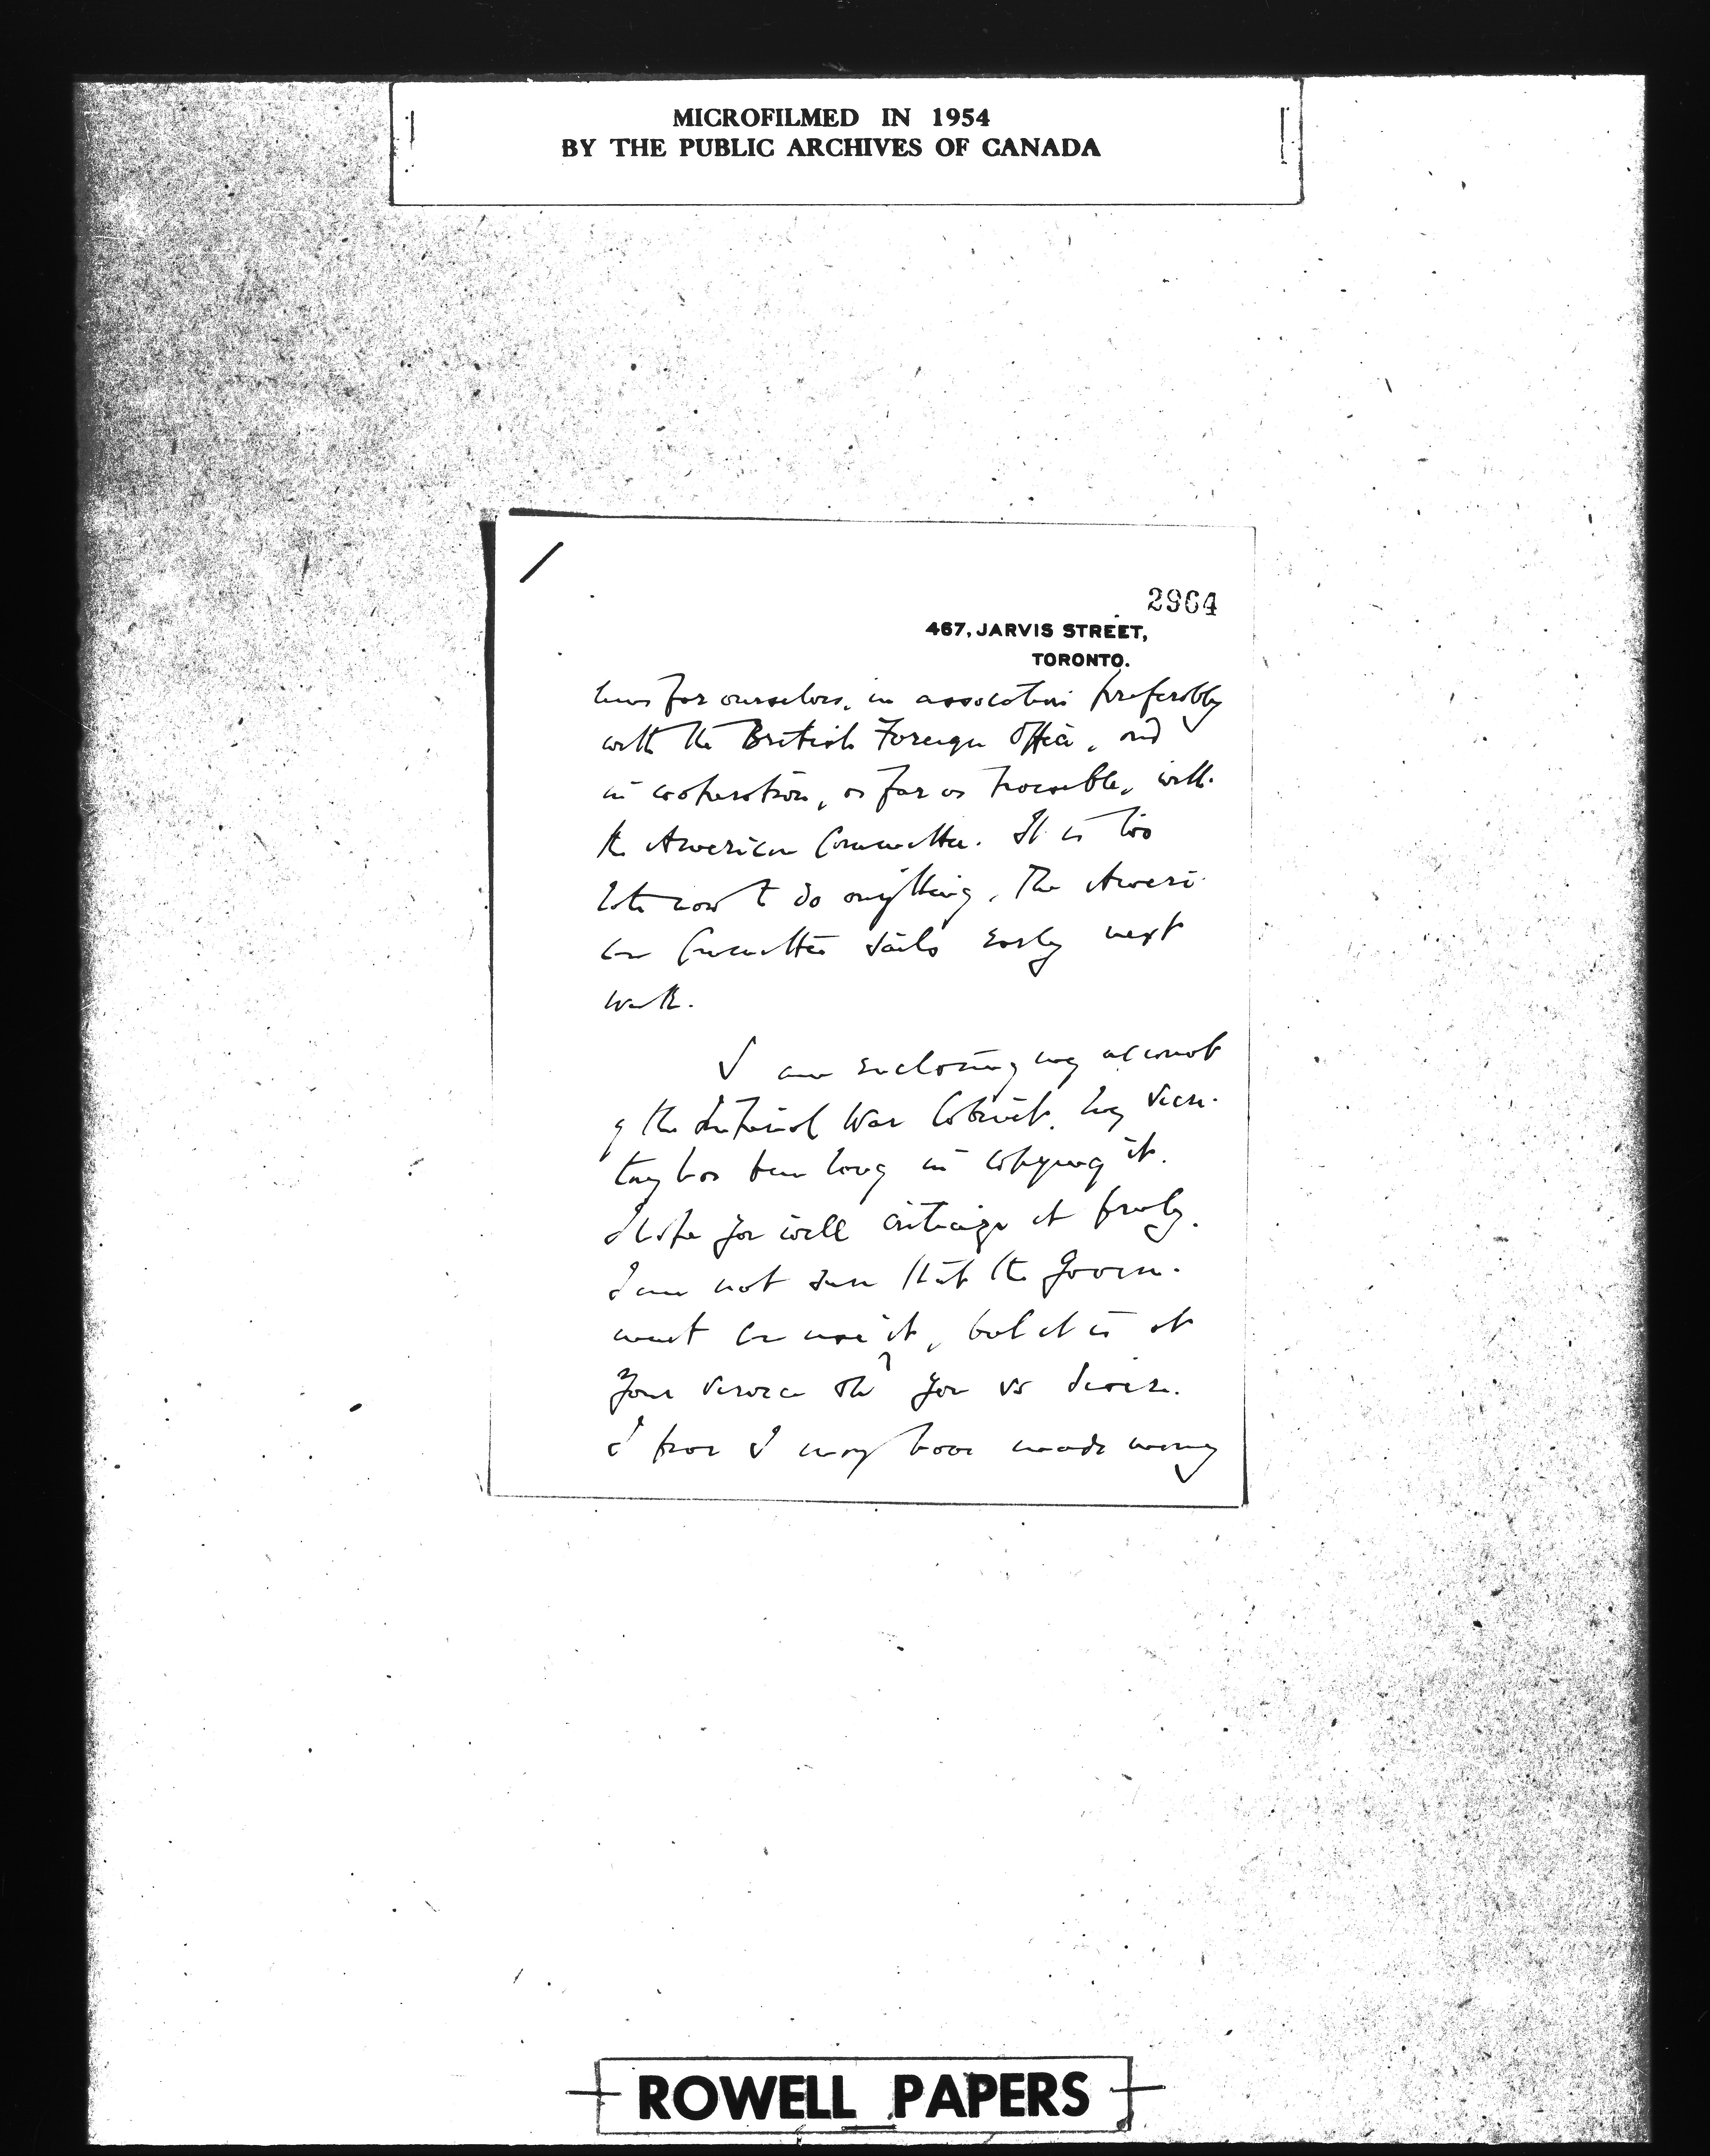 MICROFILMED IN 1954
BY THE PUBLIC ARCHIVES OF CANADA
2964
467, JARVIS STREET,
TORONTO.
for ourselves, in association preferably
with the British Foreign Office, and
in cooperation, as far as possible, with
the American Committee. It is too
late now to do anything. The Ameri-
can Committee sails early next
week.
I am enclosing my account
of the Imperial War Cabinet. My secre-
tary has been long in copying it.
I hope you will criticize it freely.
I am not sure that the Govern-
ment can use it, but it is at
your service if you so desire.
I fear I may have made many
ROWELL PAPERS